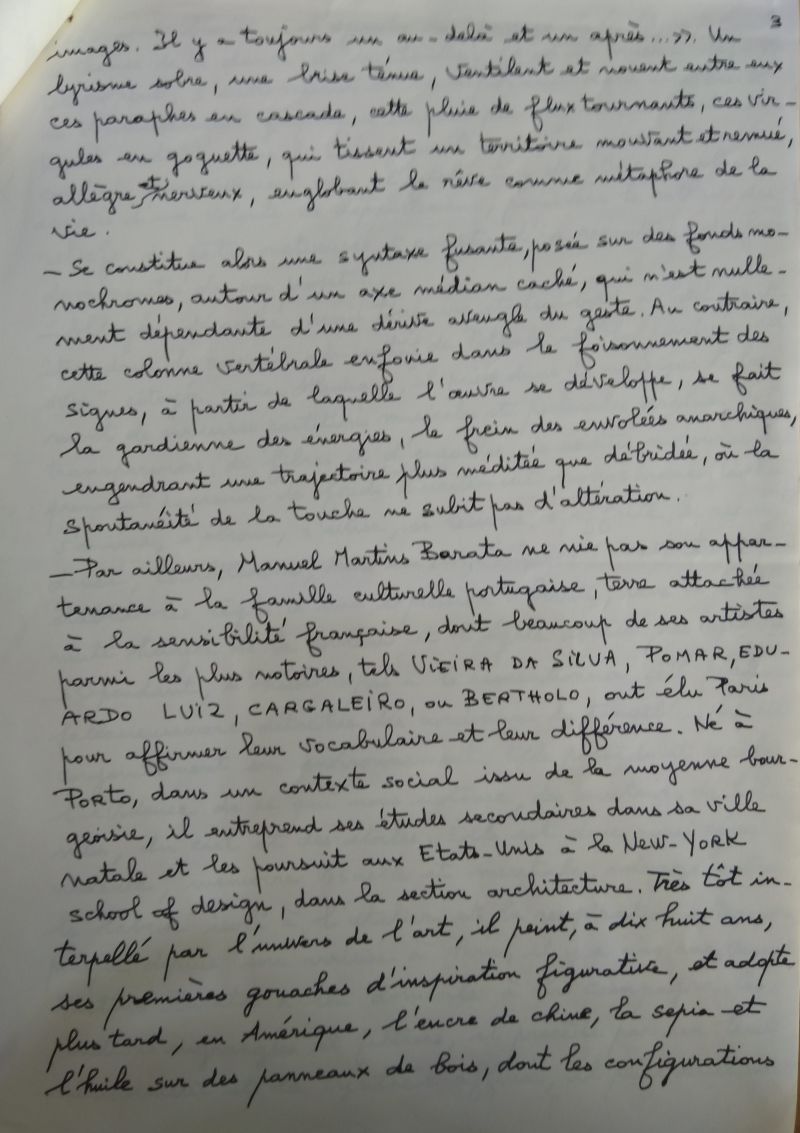 3
images. Il y a toujours un au-delà et un après...». Un
lyrisme sobre, une brise ténue, ventilent et nouent entre eux
ces paraphes en cascade, cette pluie de flux tournants, ces vir-
gules en goguette, qui tissent un territoire mouvant et remué,
allègre et nerveux, englobant le rêve comme métaphore de la
vie.
— Se constitue alors une syntaxe fusante, posée sur des fonds mo-
nochromes, autour d'un axe médian caché, qui n'est nulle-
ment dépendante d'une dérive aveugle du geste. Au contraire,
cette colonne vertébrale enfouie dans le foisonnement des
signes, à partir de laquelle l'œuvre se développe, se fait
la gardienne des énergies, le frein des envolées anarchiques,
engendrant une trajectoire plus méditée que débridée, où la
spontanéité de la touche ne subit pas d'altération.
— Par ailleurs, Manuel Martins Barata ne nie pas son appar-
tenance à la famille culturelle portugaise, terre attachée
à la sensibilité française, dont beaucoup de ses artistes
parmi les plus notoires, tels VIEIRA DA SILVA, POMAR, EDU-
ARDO LUIZ, CARGALEIRO, ou BERTHOLO, ont élu Paris
pour affirmer leur vocabulaire et leur différence. Né à
PORTO, dans un contexte social issu de la moyenne bour-
geoisie, il entreprend ses études secondaires dans sa ville
natale et les poursuit aux Etats-Unis à la NEW-YORK
school of design, dans la section architecture. Très tôt in-
terpellé par l'univers de l'art, il peint, à dix huit ans,
ses premières gouaches d'inspiration figurative, et adopte
plus tard, en Amérique, l'encre de chine, la sepia et
l'huile sur des panneaux de bois, dont les configurations